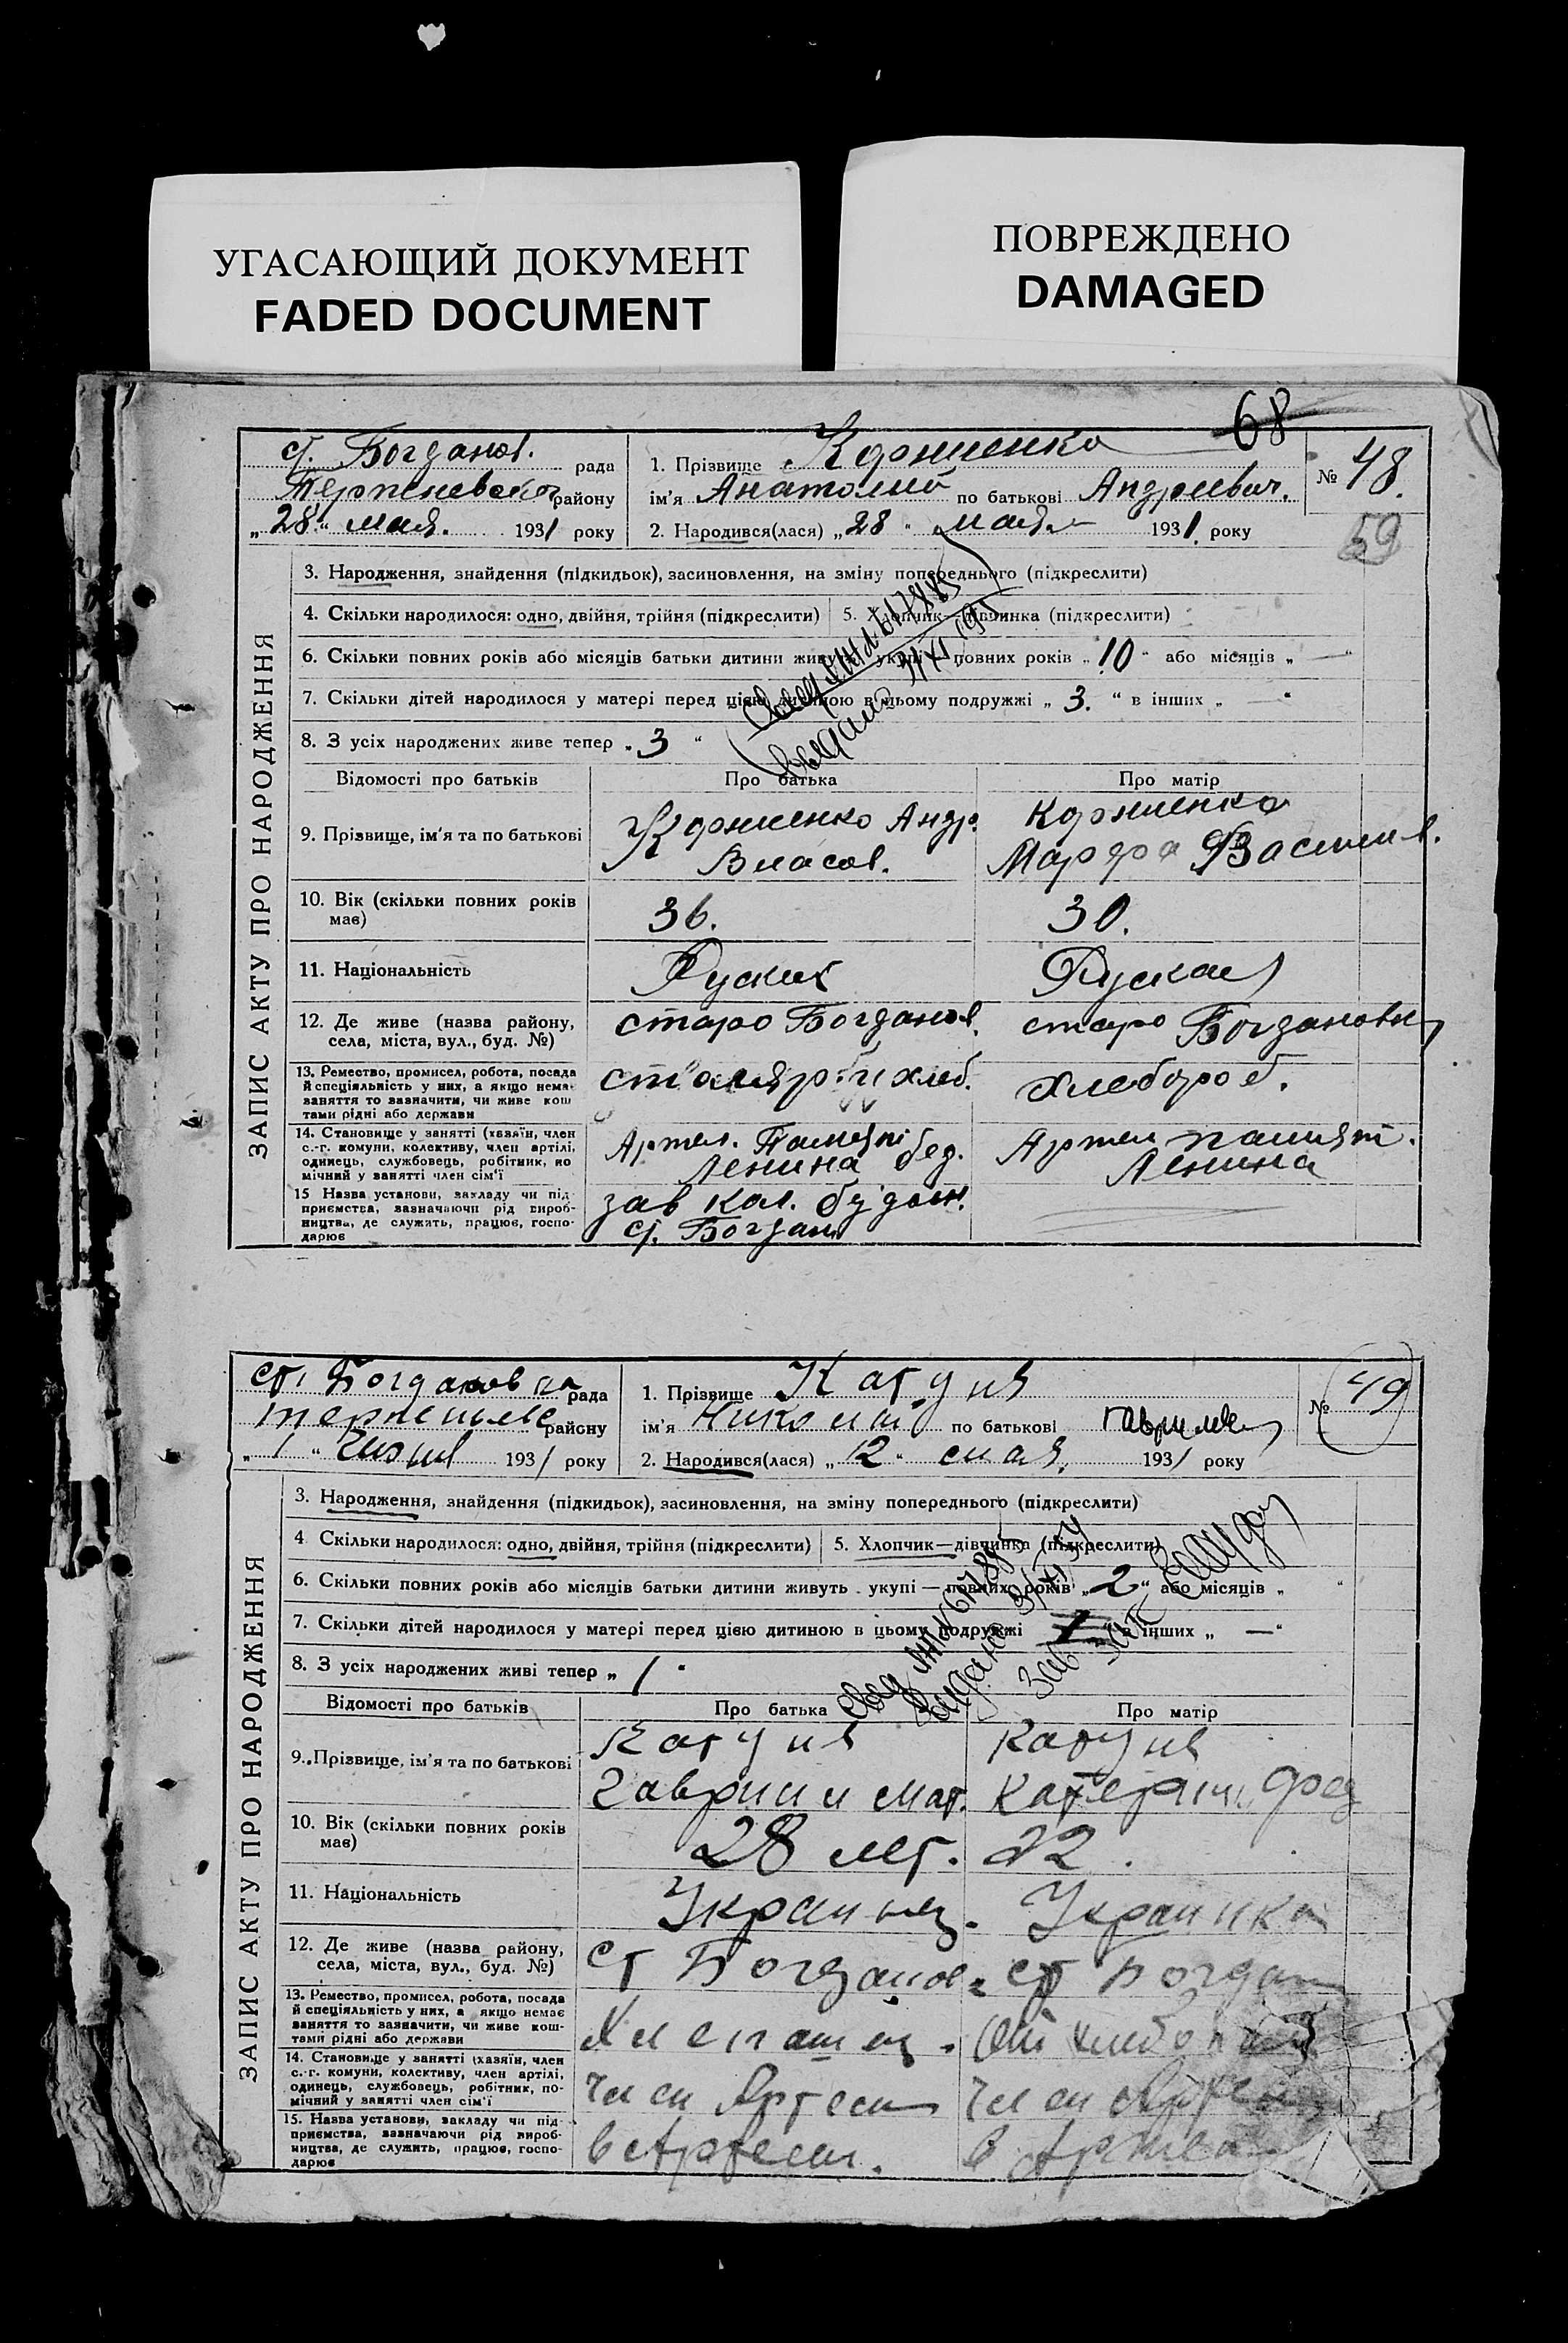 УГАСАЮЩИЙ ДОКУМЕНТ
FADED DOCUMENT
ПОВРЕЖДЕНО
DAMAGED
68
ст. Богданов. рада
району
„28“ мая. 1931 року
1. Прізвище Корниенко
ім'я Анатолий по батькові Андреевич.
2. Народився(лася) „28“ „мая 1931 року
№ 48.
59
ЗАПИС АКТУ ПРО НАРОДЖЕННЯ
3. Народження, знайдення (підкидьок), засиновлення, на зміну попереднього (підкреслити)
4. Скільки народилося: одно, двійня, трійня (підкреслити)
5. Хлопчик—дівчинка (підкреслити)
6. Скільки повних років або місяців батьки дитини живуть укупі — повних років „10“ або місяців „—“
7. Скільки дітей народилося у матері перед цією дитиною в цьому подружжі „3.“ в інших „—“
8. З усіх народжених живе тепер „3“
Відомості про батьків
Про батька
Про матір
9. Прізвище, ім'я та по батькові
Корниенко Андр.
Власов.
Корниенко
Марфа Василив.
10. Вік (скільки повних років має)
36.
30.
11. Національність
Руский
Руская
12. Де живе (назва району,
села, міста, вул., буд. №)
старо Богданов.
старо Богдановки
13. Ремество, промисел, робота, посада
й спеціяльність у них, а якщо немає
заняття то зазначити, чи живе кош
тами рідні або держави
столяр. и хлеб.
хлебороб.
14. Становище у занятті (хазяїн, член
с.-г. комуни, колективу, член артілі,
одинець, службовець, робітник, по
мічний у занятті член сім'ї
Артел. Памяті
Ленина бед.
Артел памяті.
Ленина
15 Назва установи, закладу чи під
приємства, зазначаючи рід вироб-
ництва, де служить, працює, госпо-
дарює
зав кол.
ст. Богдан
ст. Богдановка рада
району
„1“ 1931 року
1. Прізвище
ім'я Николай по батькові
2. Народився(лася) „12“ мая. 1931 року
№ 49
ЗАПИС АКТУ ПРО НАРОДЖЕННЯ
3. Народження, знайдення (підкидьок), засиновлення, на зміну попереднього (підкреслити)
4 Скільки народилося: одно, двійня, трійня (підкреслити)
5. Хлопчик—дівчинка (підкреслити)
6. Скільки повних років або місяців батьки дитини живуть укупі — повних років „2“ або місяців „ “
7. Скільки дітей народилося у матері перед цією дитиною в цьому подружжі 1 “ в інших „—“
8. З усіх народжених живі тепер „1“
Відомості про батьків
Про батька
Про матір
9. Прізвище, ім'я та по батькові
Гавриил Мат.
Катерин Фед
10. Вік (скільки повних років має)
28 лет.
22.
11. Національність
Украинец.
Украинка
12. Де живе (назва району,
села, міста, вул., буд. №)
ст Богданов.
ст Богдан
13. Ремество, промисел, робота, посада
й спеціяльність у них, а якщо немає
заняття то зазначити, чи живе кош-
тами рідні або держави
14. Становище у занятті (хазяїн, член
с.-г. комуни, колективу, член артілі,
одинець, службовець, робітник, по-
мічний у занятті член сім'ї
член Артели
член
15. Назва установи, закладу чи під
приємства, зазначаючи рід вироб-
ництва, де служить, працює, госпо-
дарює
в Артели.
в Артели